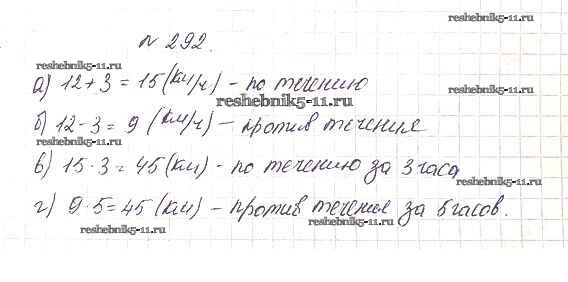 reshebnik5-11.ru
№ 292.
reshebnik5-11.ru
а) 12+3 = 15 (км/ч) - по течению
reshebnik5-11.ru
б) 12-3 = 9 (км/ч) - против течения
reshebnik5-11.ru
в) 15·3 = 45 (км) - по течению за 3 часа
reshebnik5-11.ru
г) 9·5=45 (км) - против течения за 5 часов.
reshebnik5-11.ru